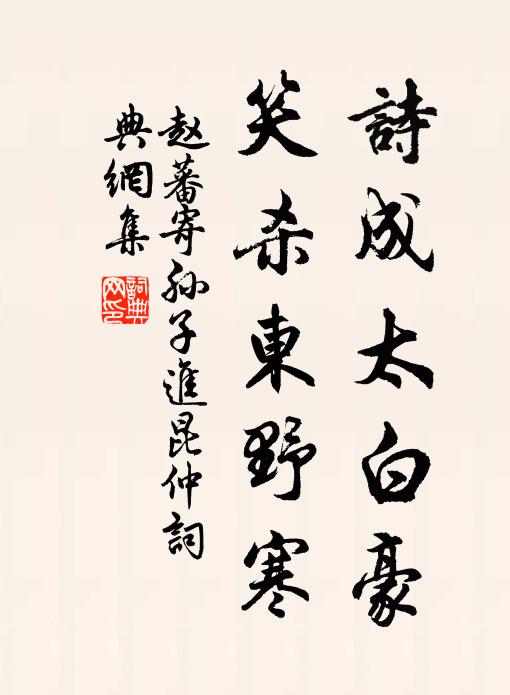 詩成太白豪
笑杀東野寒
赵蕃寄孙子進昆仲詞
典網集
詞典
网印